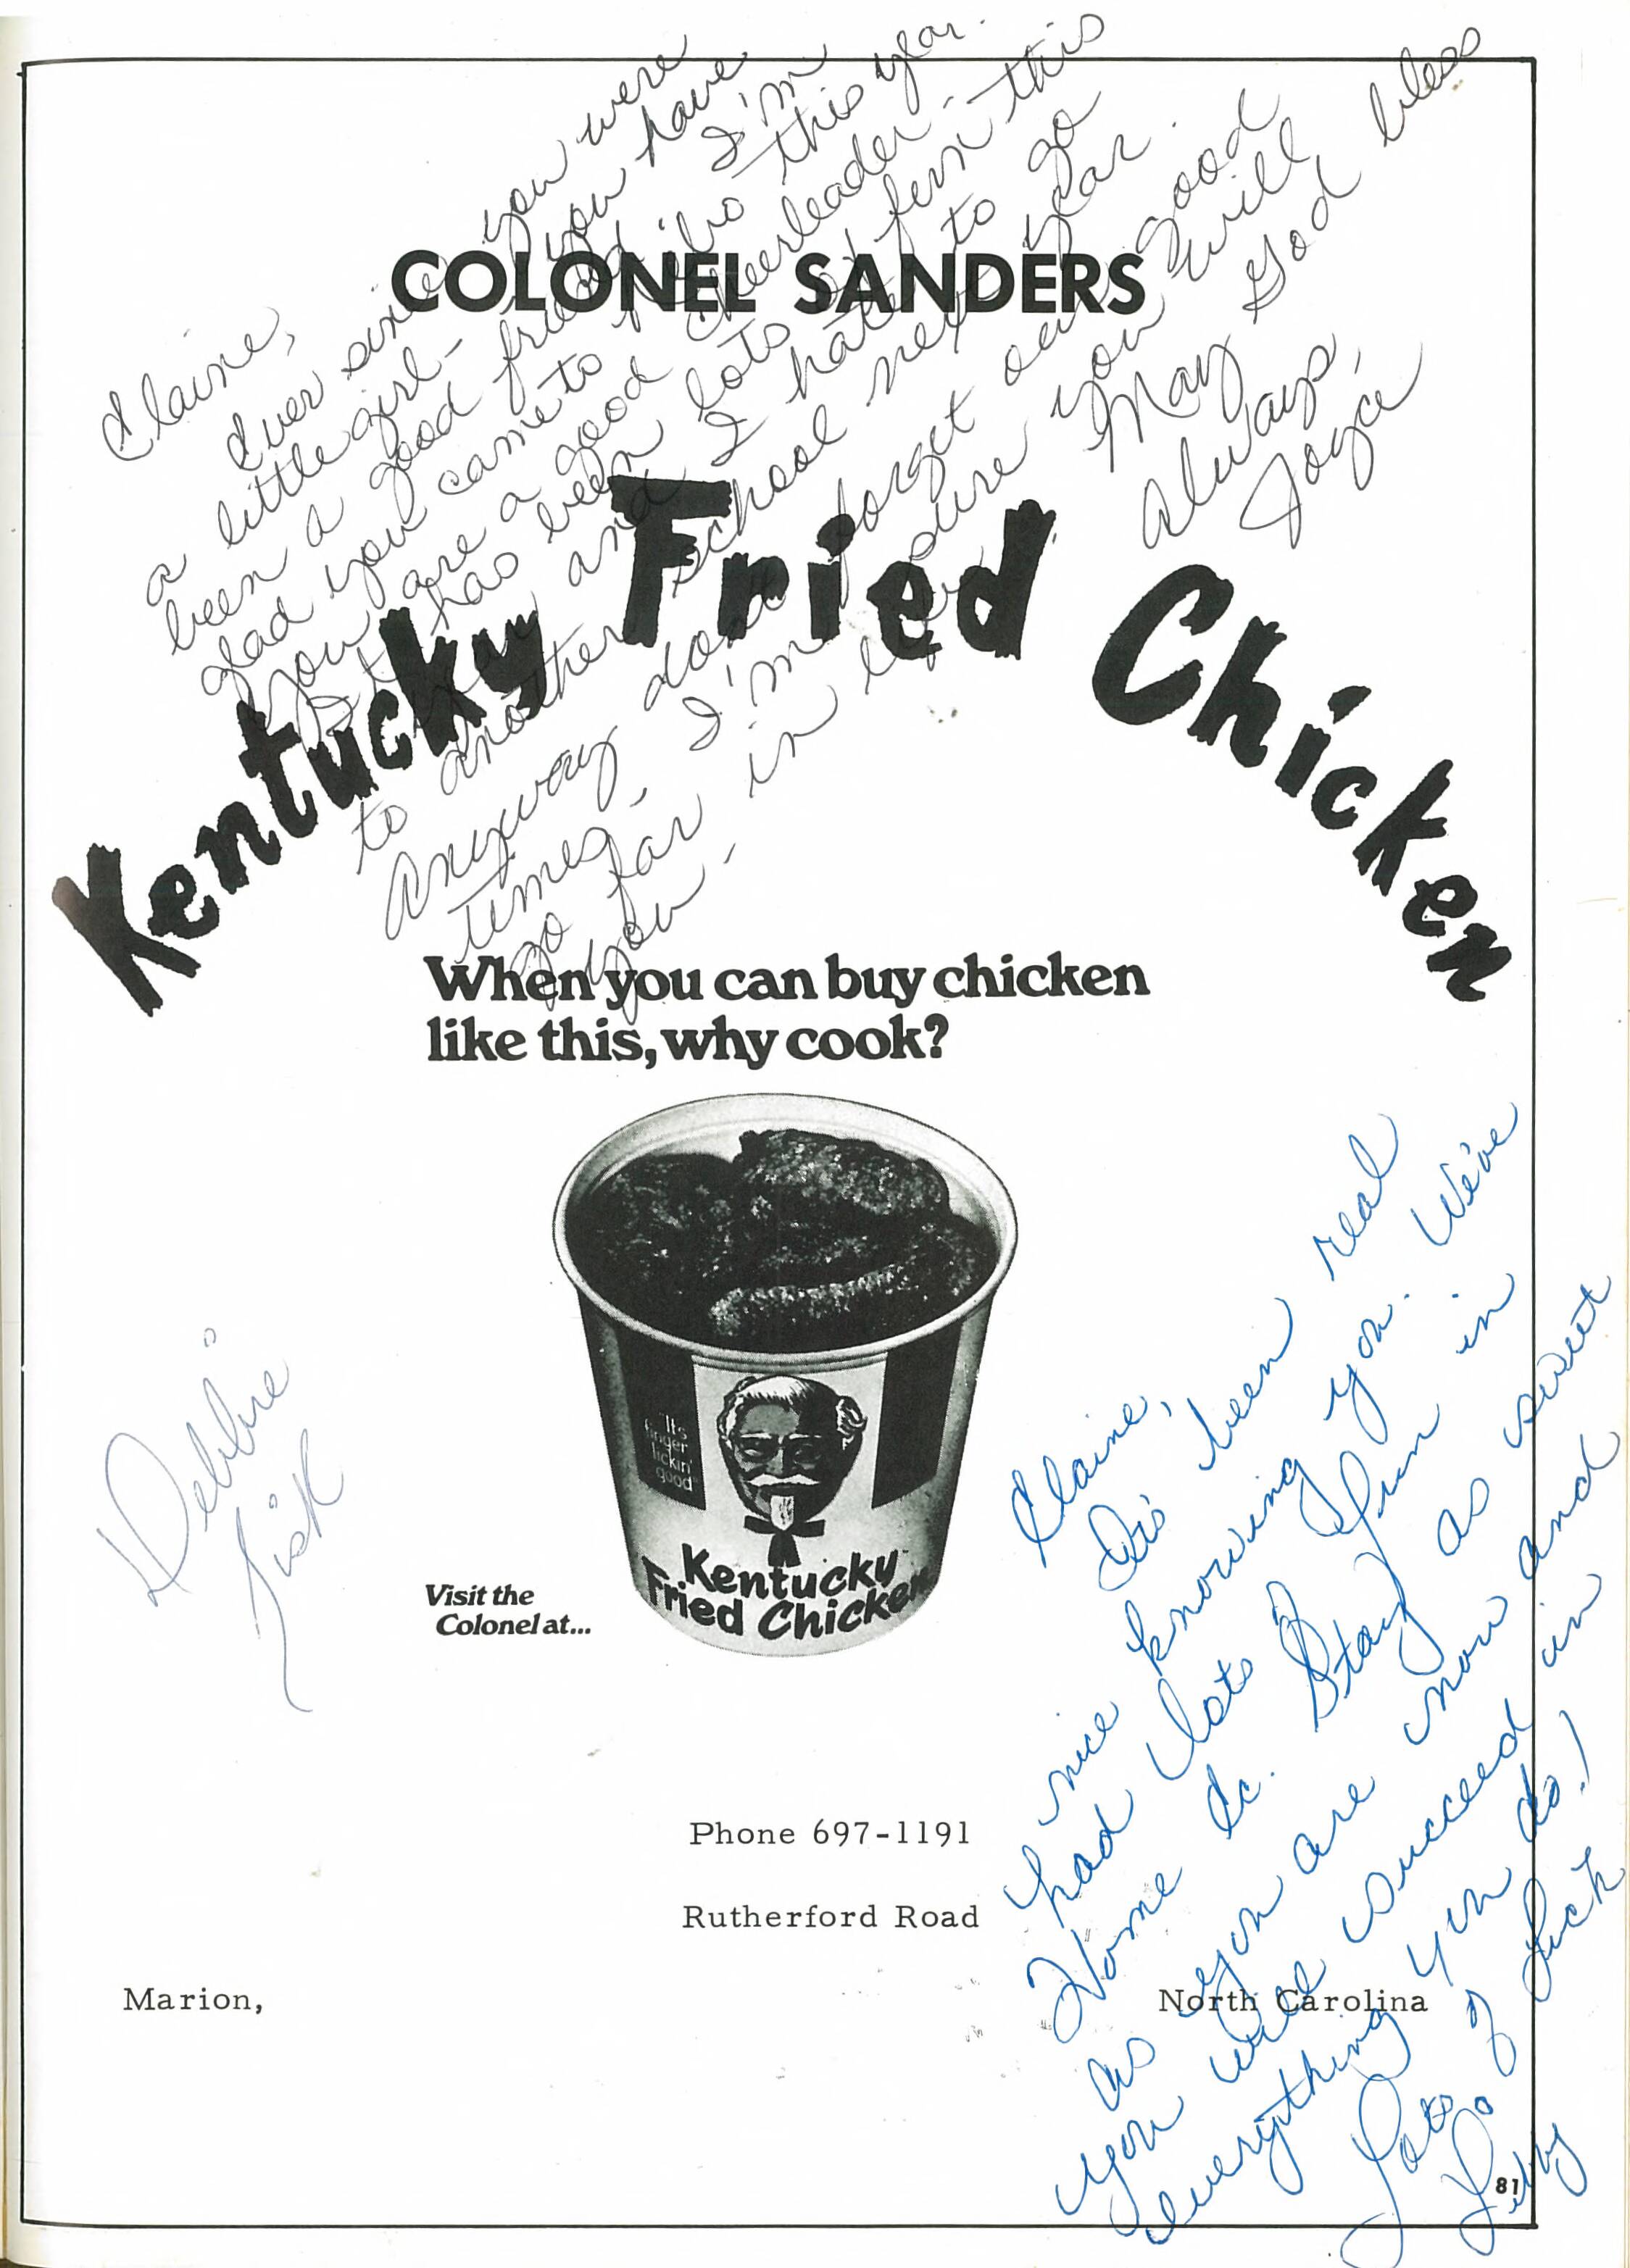 Elaine,
Ever since you were
a little girl - you have
been a good friend. I'm
glad you came to this year.
You are a good cheerleader.
It has been lots of fun this
and I hate to go
to another school next year.
Anyway don't forget our good
times, I'm sure you will
go far in life. May God bless
you -
Always,
Joyce
COLONEL SANDERS
Kentucky Fried Chicken
When you can buy chicken
like this, why cook?
It's
finger
lickin'
good
Kentucky
Fried Chicken
Visit the
Colonel at...
Debbie
Sisk
Elaine,
It's been real
nice knowing you. We've
had lots of fun in
Home Ec. Stay as sweet
as you are now and
you will succeed in
everything you do!
Lots of Luck
Libby
Phone 697-1191
Rutherford Road
Marion, North Carolina
81